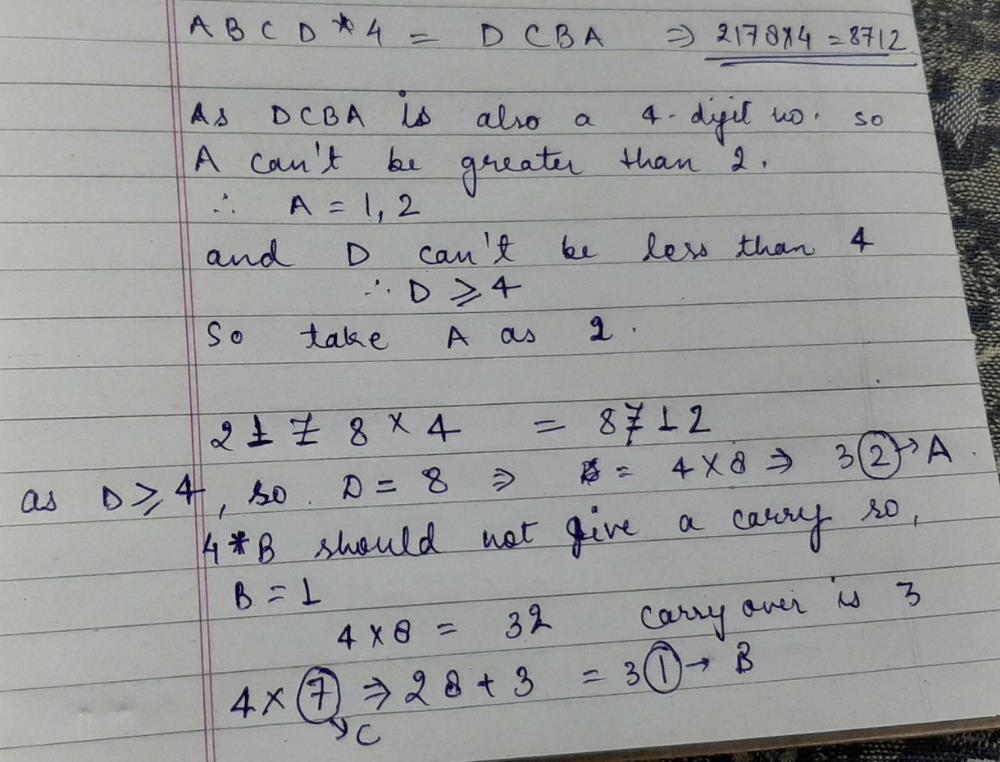 A B C D * 4 = D C B A ⇒ 2178×4 = 8712
As DCBA is also a 4-digit no. so
A can't be greater than 2.
∴ A = 1, 2
and D can't be less than 4
∴ D ⩾ 4
So take A as 2.
2 1 7 8 × 4 = 8 7 1 2
as D ⩾ 4, so. D = 8 ⇒ = 4 × 8 ⇒ 3 2 → A.
4 * B should not give a carry so,
B = 1
4 × 8 = 32 carry over is 3
4 × 7 ⇒ 28 + 3 = 3 1 → B
↘ C